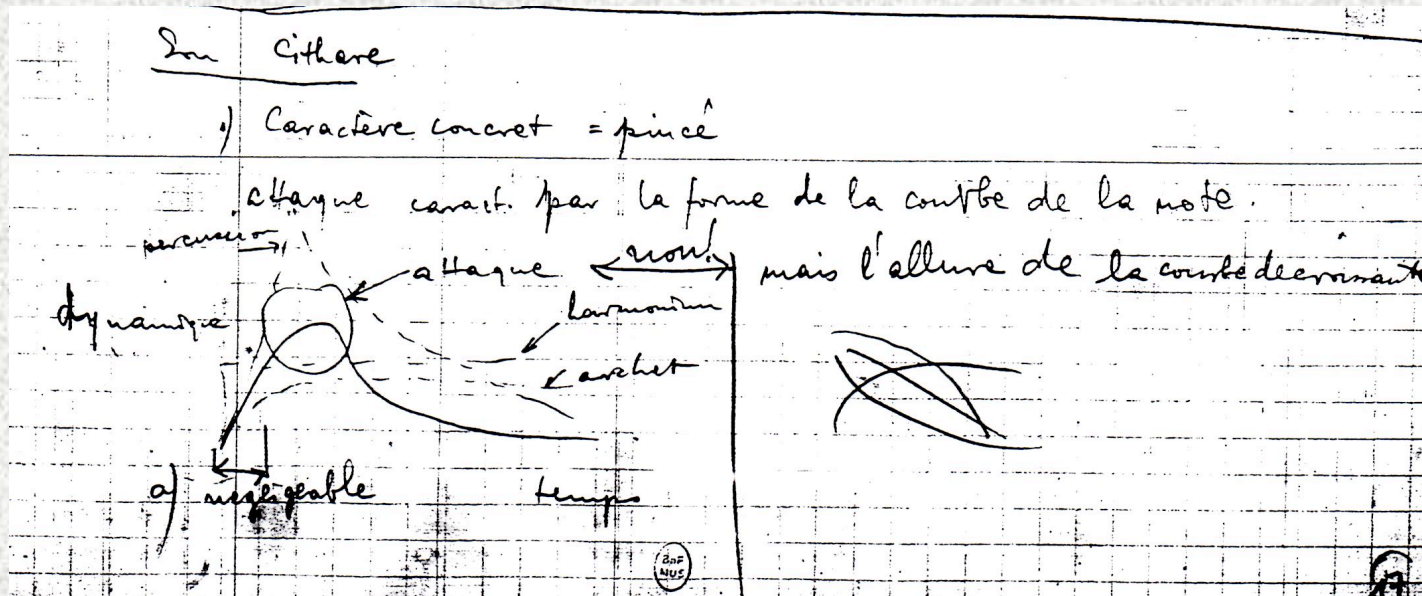 Son Cithare
1) Caractère concret = pincé
attaque caract. par la forme de la courbe de la note.
percussion
attaque
non!
mais l'allure de la courbe decroissante
dynamique
harmonium
archet
a) negligeable
temps
BnF
MUS
17